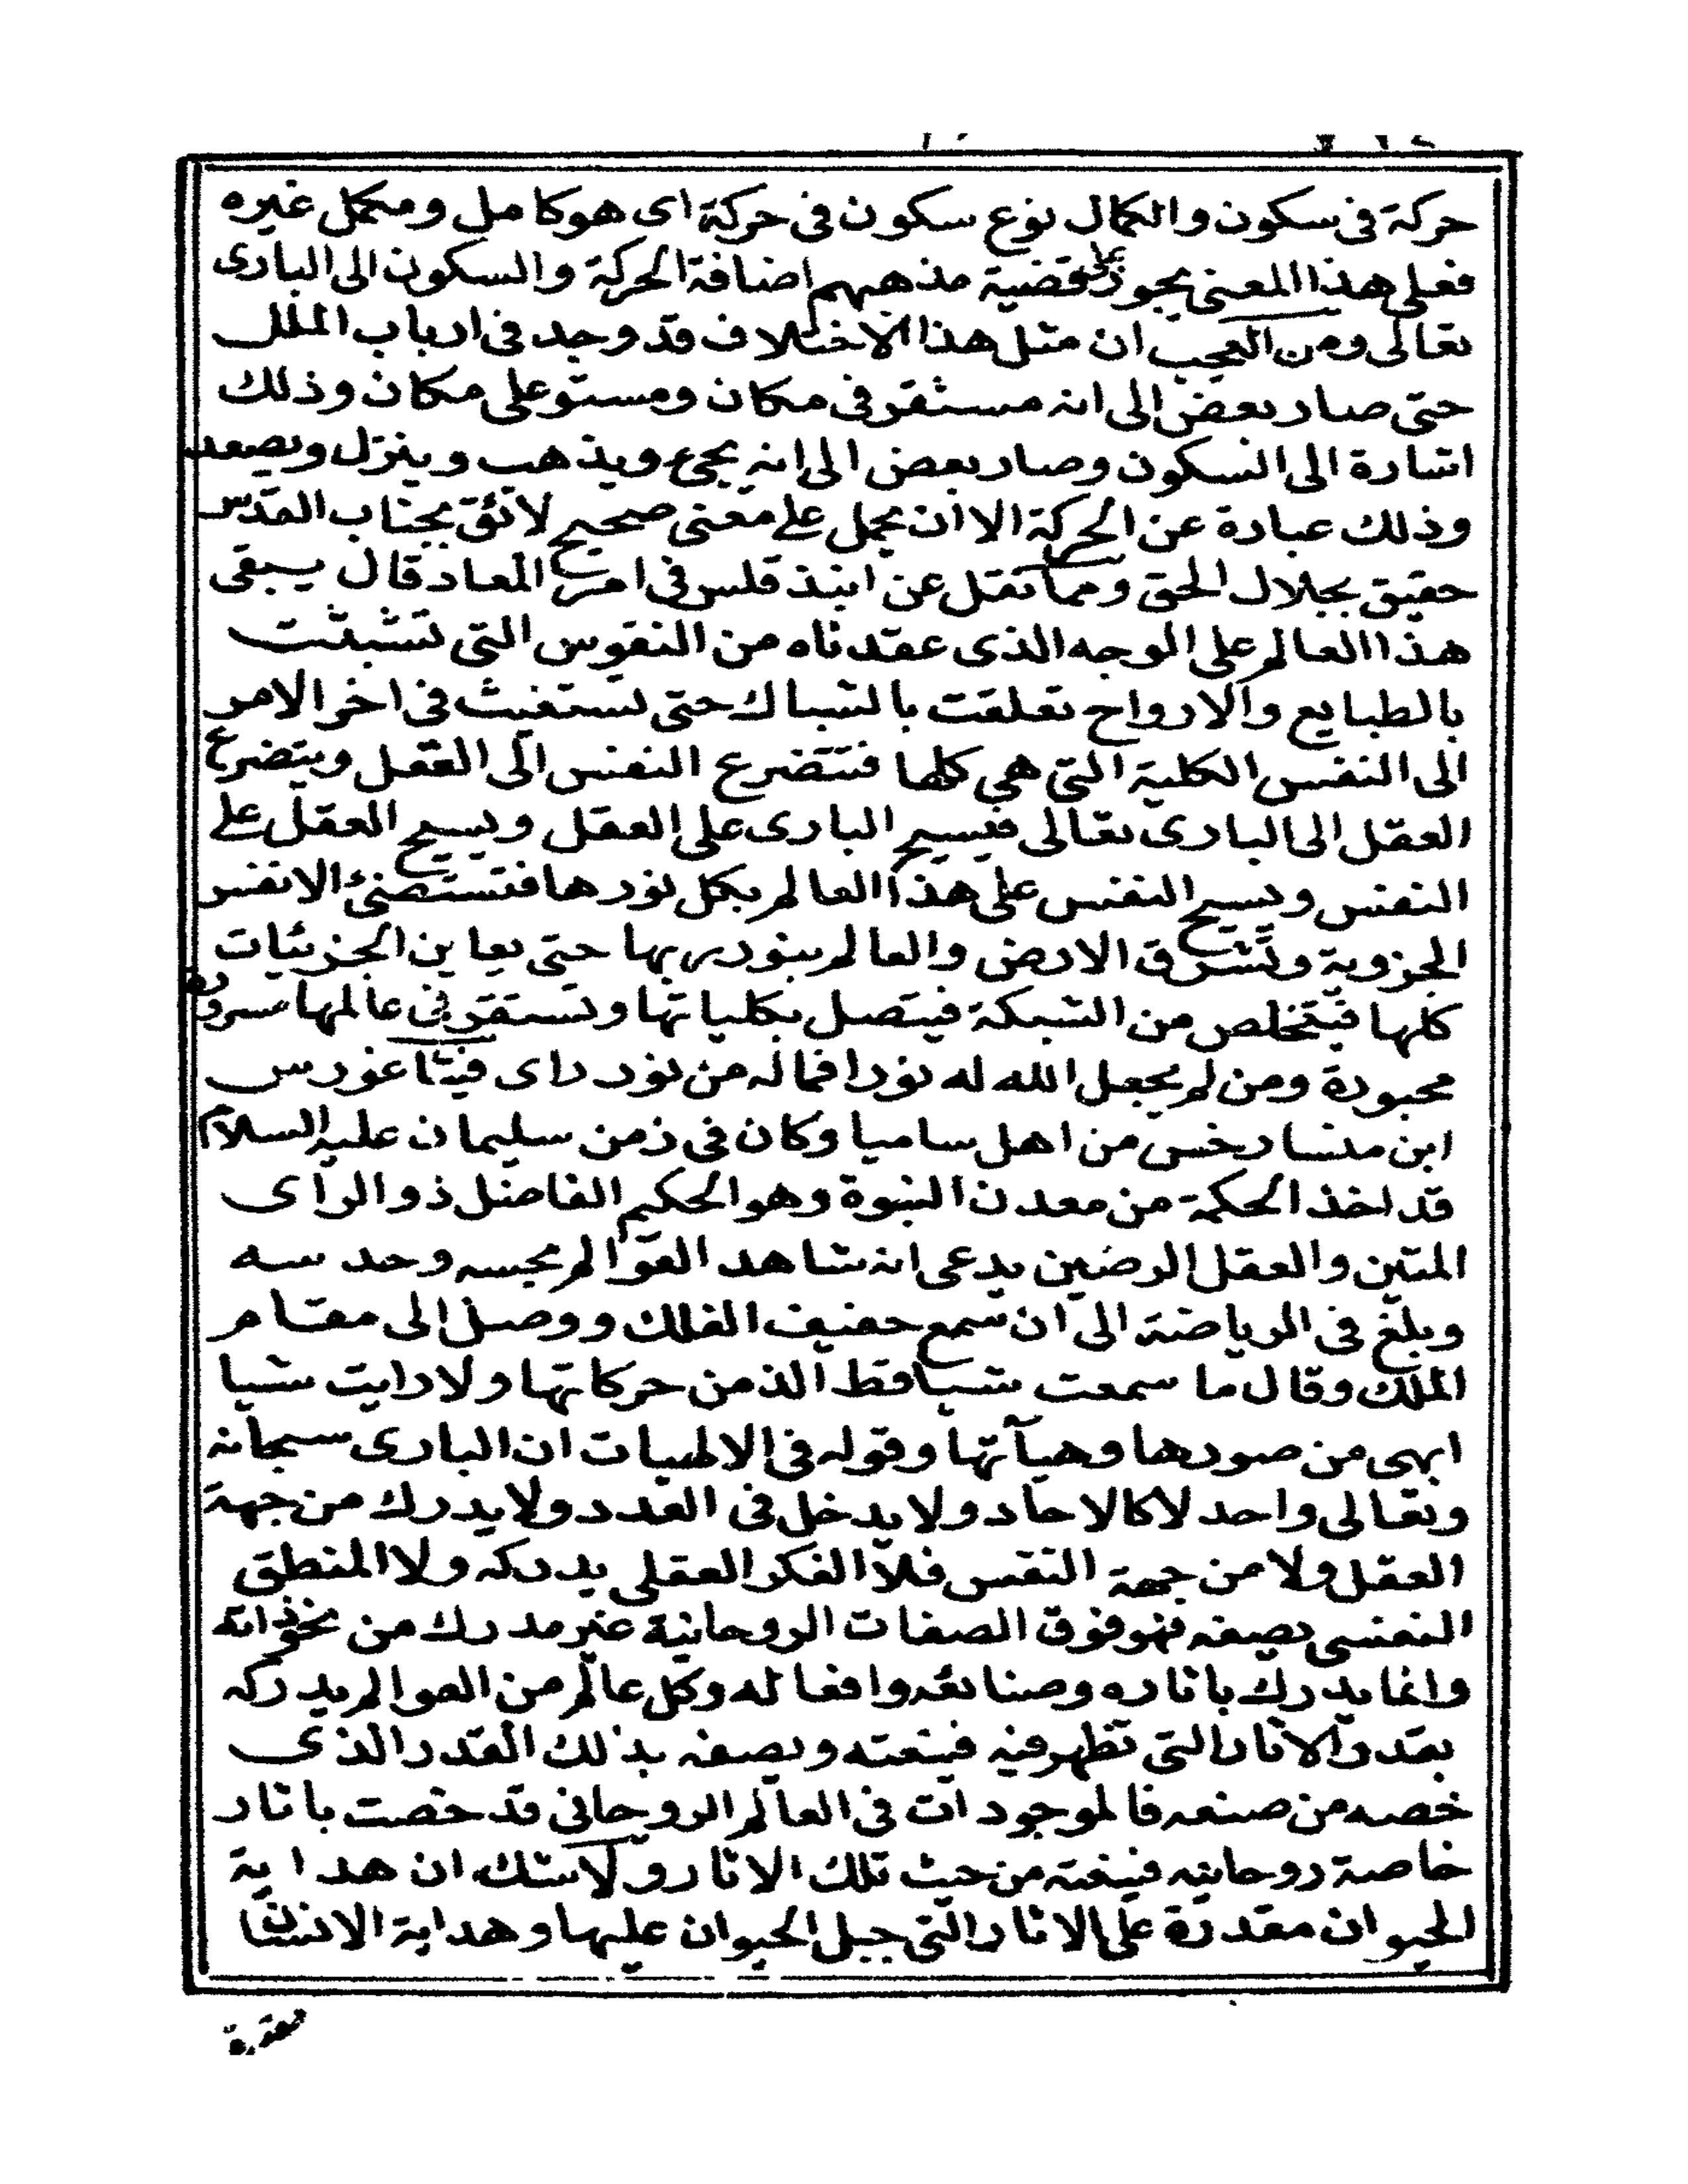 حركة فى سكون والكمال نوع سكون فى حركة اى هو كامل ومكمل غيره
فعلى هذا المعنى يجوز على قضية مذهبهم اضافة الحركة والسكون الى البارى
تعالى ومن العجب ان مثل هذا الاختلاف قد وجد فى ارباب الملل
حتى صار بعض الى انه مستقر فى مكان ومستو على مكان وذلك
اشارة الى السكون وصار بعض الى انه يجىء ويذهب وينزل ويصعد
وذلك عبارة عن الحركة الا ان يحمل على معنى صحيح لائق بجناب القدس
حقيق بجلال الحق ومما نقل عن ابنذ قلس فى امر المعاد قال يبقى
هذا العالم على الوجه الذى عقدناه من النفوس التى تشبثت
بالطبايع والارواح تعلقت بالشباك حتى تستغيث فى اخر الامر
الى النفس الكلية التى هى كلها فتتضرع النفس الى العقل ويتضرع
العقل الى البارى تعالى فيسيح البارى على العقل ويسيح العقل على
النفس ويسيح النفس على هذا العالم بكل نورها فتستضئ الانفس
الجزوية وتشرق الارض والعالم بنور ربها حتى يعاين الجزئيات
كلها فيتخلص من الشبكة فيتصل بكلياتها وتستقر فى عالمها مسرورة
محبورة ومن لم يجعل الله له نورا فماله من نور راى فيثاغورس
ابن منسارخس من اهل ساميا وكان فى زمن سليمان عليه السلام
قد اخذ الحكمة من معدن النبوة وهو الحكيم الفاضل ذو الراى
المتين والعقل الرضين يدعى انه شاهد العوالم بحسه وحدسه
وبلغ فى الرياضة الى ان سمع حفيف الفلك ووصل الى مقام
الملك وقال ما سمعت شيا قط الذ من حركاتها ولا رايت شيا
ابهى من صورها وهيآتها وقوله فى الالهيات ان البارى سبحانه
وتعالى واحد لا كالاحاد ولا يدخل فى العدد ولا يدرك من جهة
العقل ولا من جهة النفس فلا الفكر العقلى يدركه ولا المنطق
النفسى يصفه فهو فوق الصفات الروحانية غير مدرك من نحو ذاته
وانما يدرك باثاره وصنائعه وافعاله وكل عالم من العوالم يدركه
بقدر الاثار التى تظهر فيه فينعته ويصفه بذلك القدر الذى
خصه من صنعه فالموجودات فى العالم الروحانى قد خصت باثار
خاصة روحانيه فينعته من حيث تلك الاثار ولا شك ان هداية
الحيوان مقدرة على الاثار التى جبل الحيوان عليها وهداية الانسان
مقدرة